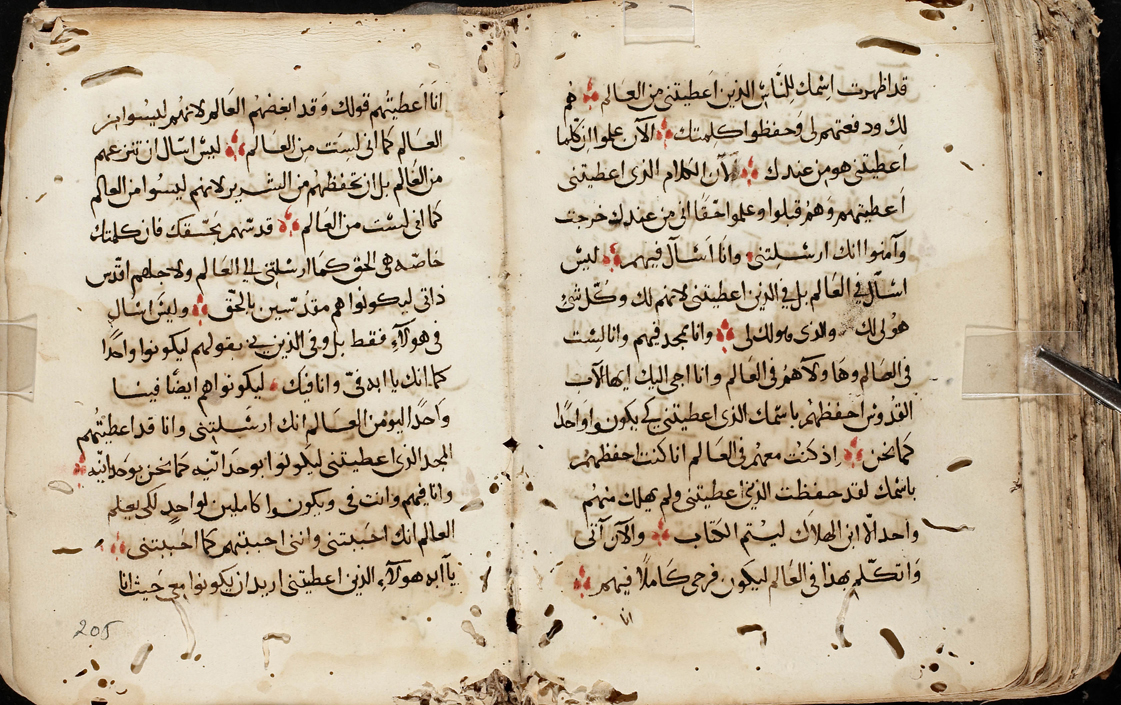 قد اظهرت اسمك للناس الذين اعطيتنى من العالم هم
لك ودفعتهم لى وحفظوا كلمتك الآن علموا ان كلما
اعطيتنى هو من عندك لآن الكلام الذى اعطيتنى
اعطيتهم وهم قبلوا وعلموا حقا انى من عندك خرجت
وآمنوا انك ارسلتنى وانا اسأل فيهم ليس
اسأل فى العالم بل فى الذين اعطيتنى لانهم لك وكل شى
هو لى لك والذى هو لك لى وانا ممجد فيهم وانا لست
فى العالم وهاولآ هم فى العالم وانا اجى اليك ايها الآب
القدوس احفظهم باسمك الذى اعطيتنى كى يكونوا واحدا
كما نحن اذ كنت معهم فى العالم انا كنت احفظهم
باسمك لقد حفظت الذين اعطيتنى ولم يهلك منهم
واحد الا ابن الهلاك ليتم الكتاب والآن آتى
وانكلم بهذا فى العالم ليكون فرحى كاملا فيهم
انا
انا اعطيتهم قولك وقد ابغضهم العالم لانهم ليسوا من
العالم كما انى لست من العالم ليس اسال ان تنزعهم
من العالم بل ان تحفظهم من الشرير لانهم ليسوا من العالم
كما انى لست من العالم قدسهم بحقك فان كلمتك
خاصه هى الحق كما ارسلتنى الى العالم ولاجلهم اقدس
ذاتى ليكونوا هم مقدسين بالحق وليس اسال
فى هولآء فقط بل وفى الذين بى بقولهم ليكونوا واحدا
كما انك يا ابه فىّ وانا فيك ليكونوا هم ايضا فينا
واحدا ليومن العالم انك ارسلتنى وانا قد اعطيتهم
المجد الذى اعطيتنى ليكونوا بوحدانيه كما نحن بوحدانيه
وانا فيهم وانت فى ويكونوا كاملين لواحد لكى يعلم
العالم انك ارسلتنى واننى احببتهم كما احببتنى
يا ابه هولآء الذين اعطيتنى اريد ان يكونوا معى حيث انا
205